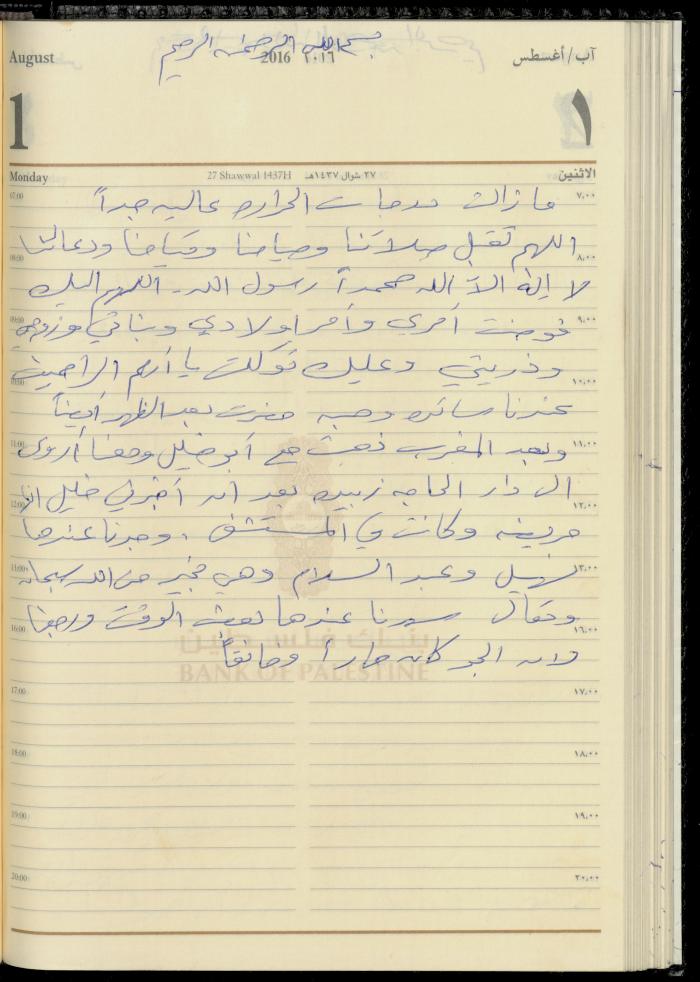 بسم الله الرحمن الرحيم
August 2016 ٢٠١٦ آب/أغسطس
1 ١
Monday 27 Shawwal 1437H ٢٧ شوال ١٤٣٧هـ الاثنين
07:00 ٧,٠٠
ما زالت درجات الحراره عاليه جداً
اللهم تقبل صلاتنا وصيامنا وقيامنا ودعائنا
08:00 ٨,٠٠
لا إله الا الله محمداً رسول الله . اللهم اليك
09:00 ٩,٠٠
فوضت أمري وأمر اولادي وبناتي وزوجي
وذريتي وعليك توكلت يا أرحم الراحمين
١٠,٠٠
عندنا سائده وهبه حضرت بعد الظهر أيضاً
11:00 ١١,٠٠
وبعد المغرب ذهبت مع أبو خليل ومعنا أروى
الى دار الحاجه زبيده بعد ان أخبرني خليل انها
12:00 ١٢,٠٠
مريضه وكانت في المستشفى . وجدنا عندها
١٣,٠٠
نبيل وعبد السلام وهي بخير من الله سبحانه
وتعالى سهرنا عندها بعض الوقت ورجعنا
16:00 ١٦,٠٠
لان الجو كان حاراً وخانقاً
بنك فلسطين
BANK OF PALESTINE
17:00 ١٧,٠٠
18:00 ١٨,٠٠
19:00 ١٩,٠٠
20:00 ٢٠,٠٠